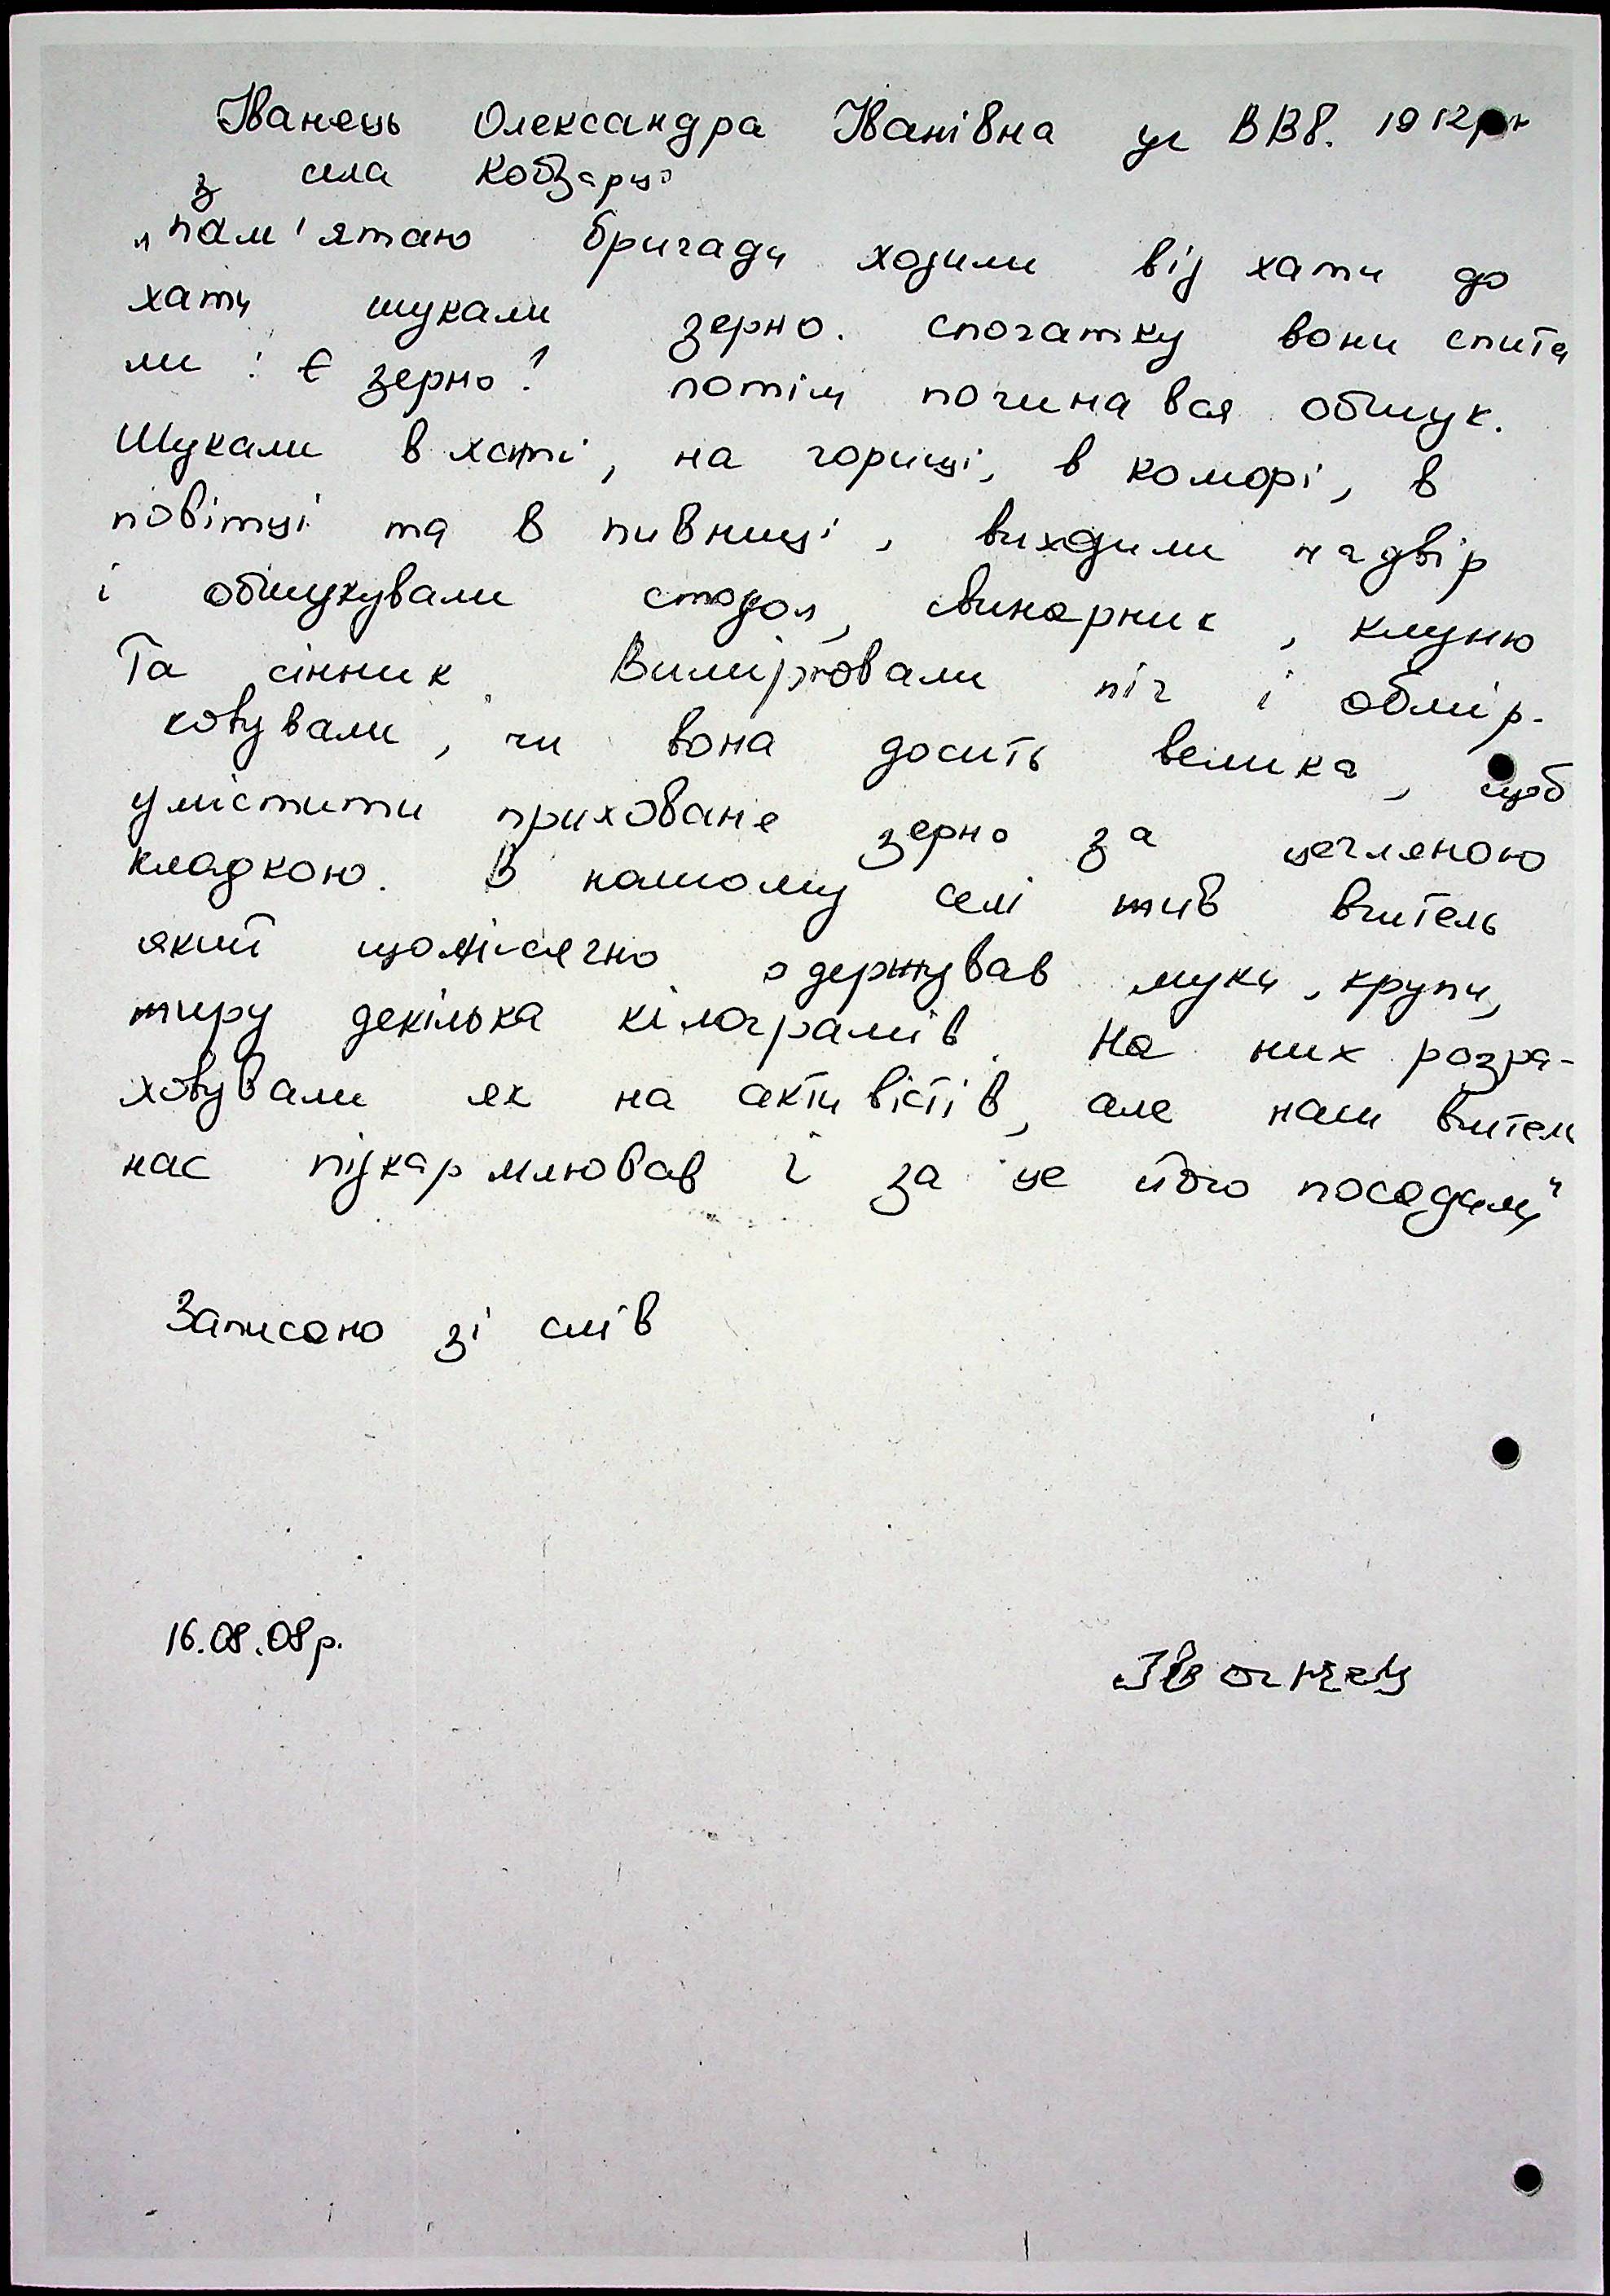 Іванець Олександра Іванівна уч ВВв. 1912р.н
з села Кобзарці
„пам'ятаю бригади ходили від хати до
хати шукали зерно. спочатку вони спита
ли: Є зерно? потім починався обшук.
Шукали в хаті, на горищі, в коморі, в
повітці та в пивниці, виходили надвір
і обшукували стодол, свинарник, клуню
Та сінник. Вимірювали піч і обмір-
ковували, чи вона досить велика, щоб
умістити приховане зерно за цегляною
кладкою. В нашому селі жив вчитель
який щомісячно одержував муки, крупи,
жиру декілька кілограмів. На них розра-
ховували як на активістів, але наш вчитель
нас підкармлював і за це його посадили"
Записано зі слів
16.08.08р.
Іванець